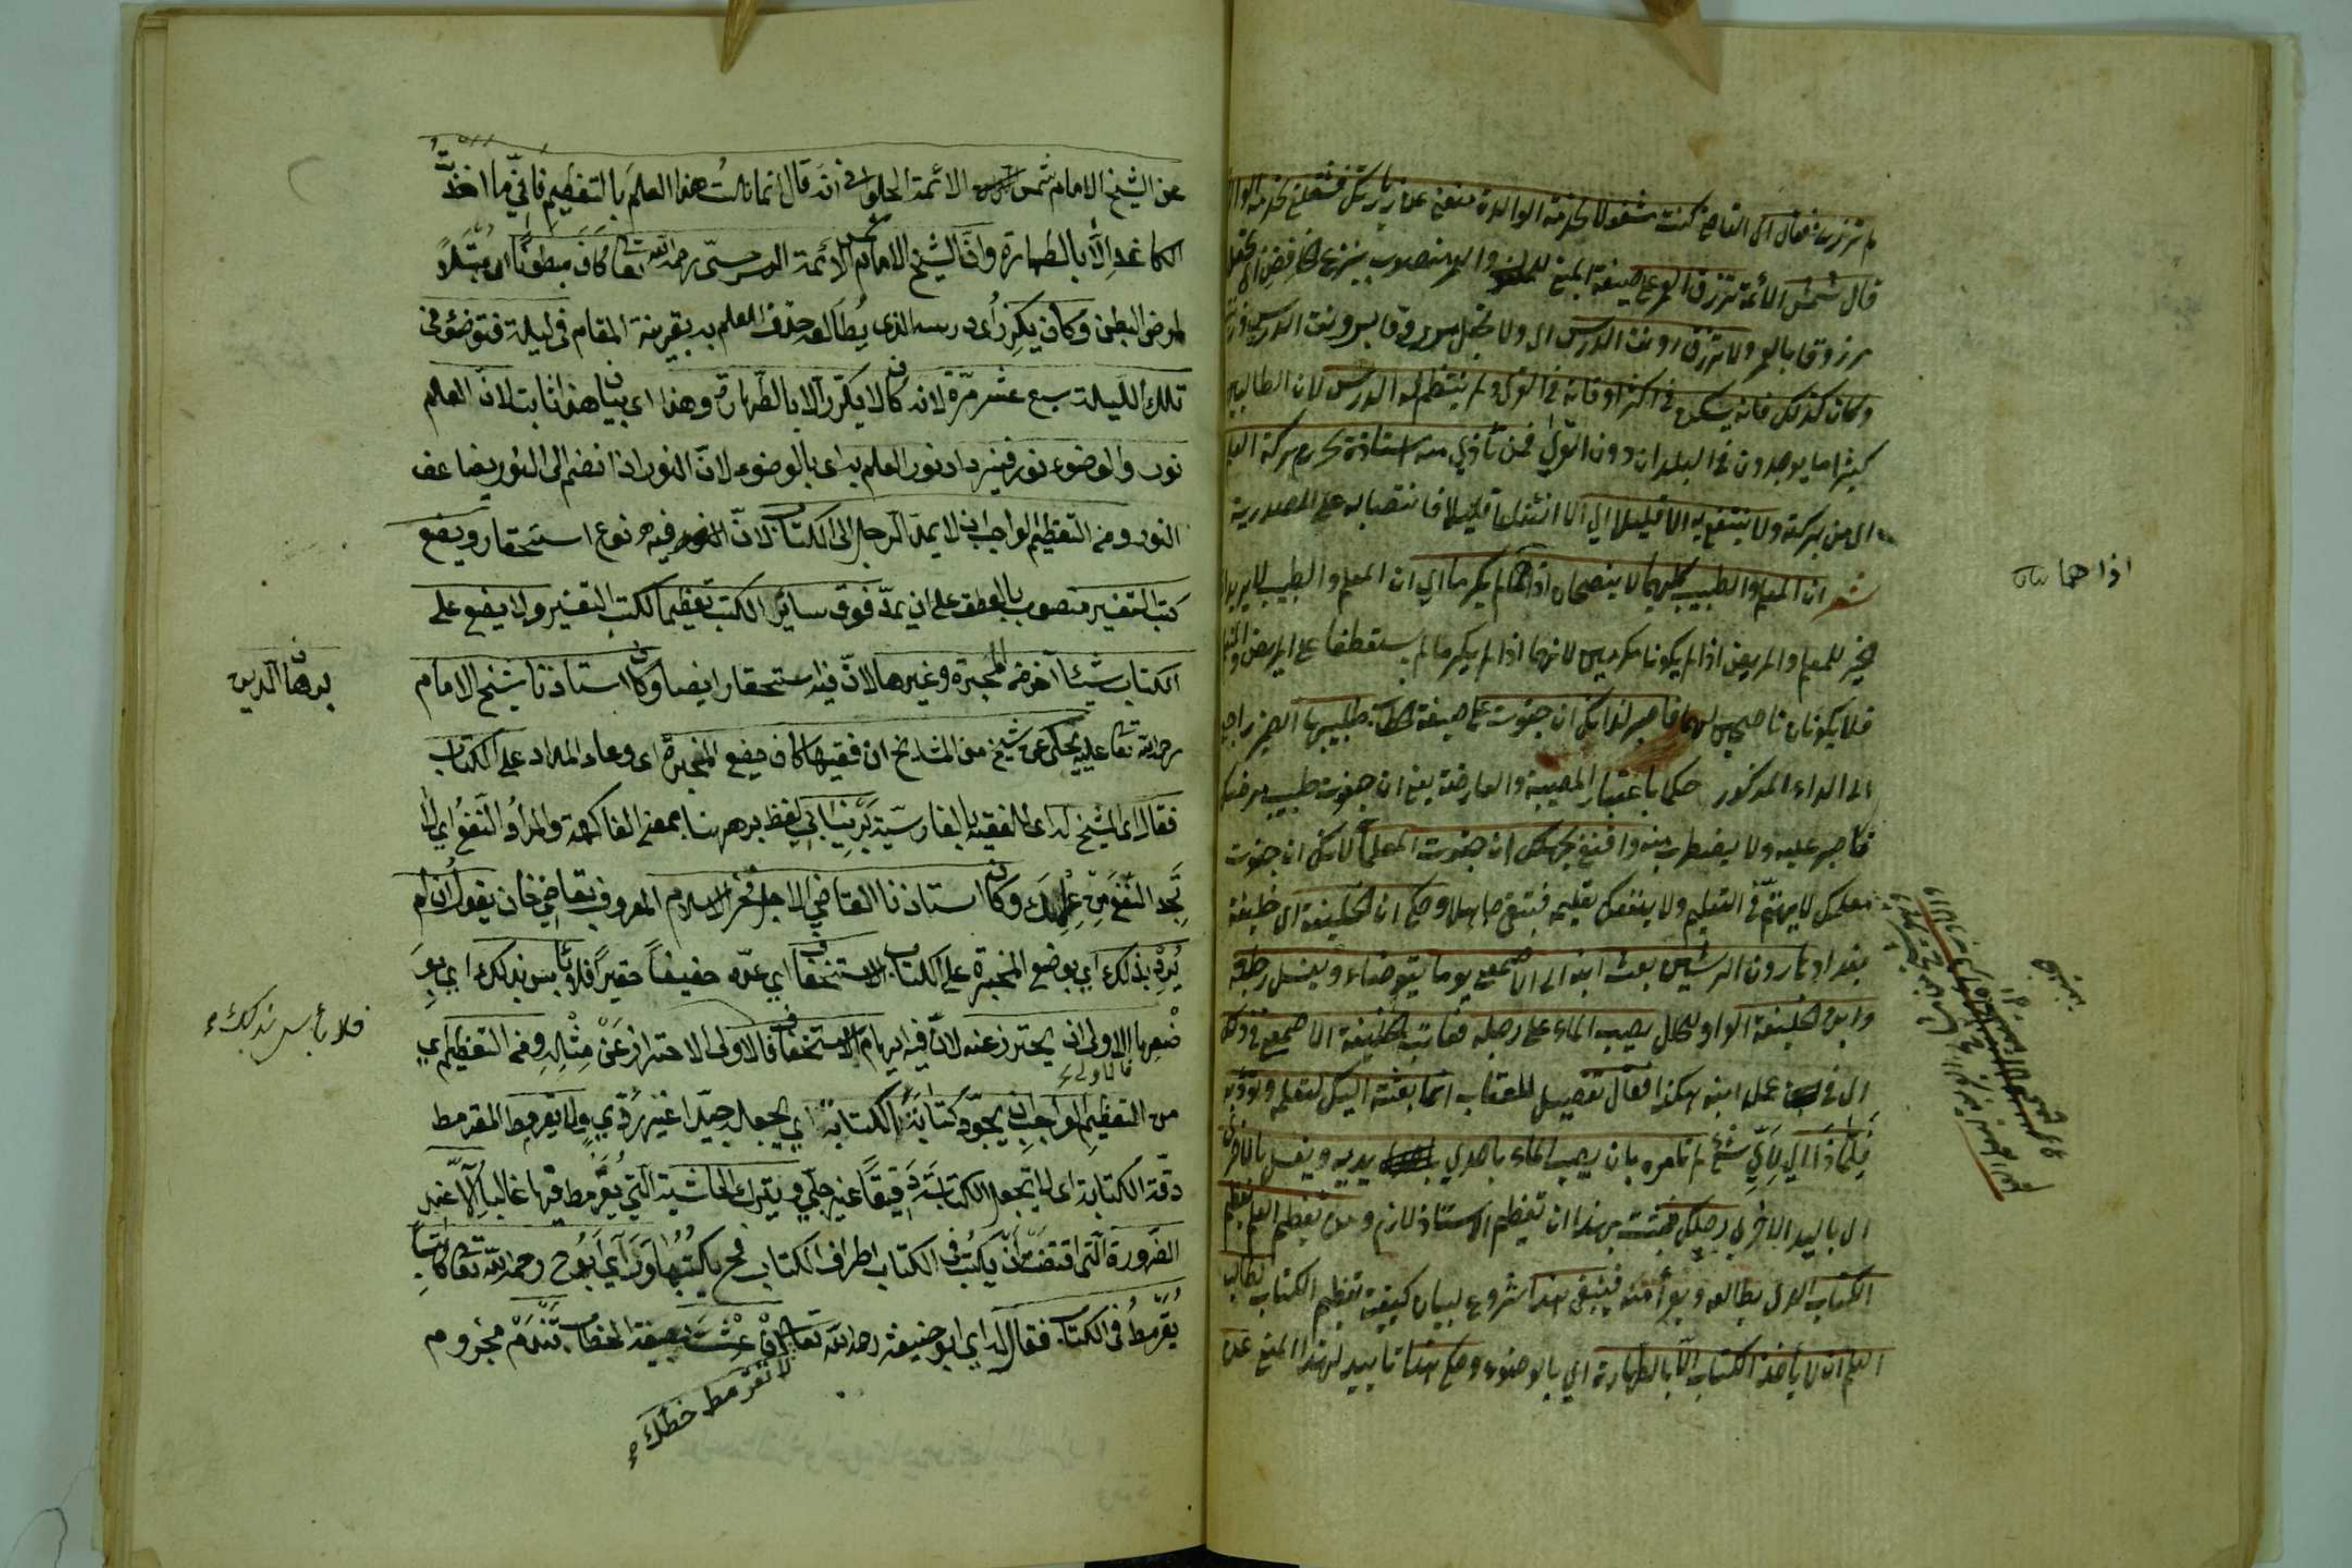 لم تزرني فقال اي القاضي كنت مشغولا بخدمة الوالدة
قال شمس الائمة ترزق العمر على صيغة المبني والعمر منصوب بنزع الخافض اي تجعل
مرزوقا بالعمر ولا ترزق رونق الدرس اي ولا تجعل مرزوقا برونق الدرس
وكان كذلك فانه يسكن في اكثر اوقاته في القرى ولم ينتظم له الدرس لان الطالبين
كثيرا ما يوجدون في البلدان دون القرى فمن تأذي منه استاذه يحرم بركة العلم
اي من بركته ولا ينتفع به الا قليلا اي الا انتفاعا قليلا فانتصابه على المصدرية
شعر ان المعلم والطبيب كليهما لا ينصحان اذا هما لم يكرما اي ان المعلم والطبيب لا يريدان
الخير للمتعلم والمريض اذا لم يكونا مكرمين لانهما اذا لم يكرما لم
فلا يكونان ناصحين لهما فاصبر لدائك ان جفوت على صيغة الخطاب طبيبها الضمير راجع
الى الداء المذكور حكما باعتبار المصيبة والعارضة يعني ان جفوت طبيب مرضك
فاصبر عليه ولا يضطرب منه واقنع بجهلك ان جفوت المعلما لانك ان جفوت
معلمك لا يهتم في التعليم ولا ينفعك تعليمه فتبقى جاهلا وحكي ان الخليفة اي خليفة
بغداد هارون الرشيد بعث ابنه الى الاصمعي يوما يتوضاء ويغسل رجله
وابن الخليفة الواو للحال يصب الماء على رجله فعاتب الخليفة الاصمعي في ذلك
اي في عمل ابنه هكذا فقال تفصيل للعتاب انما بعثته اليك لتعلمه وتؤدبه
فلماذا اي لاي شئ لم تامره بان يصب الماء باحدي يديه ويغسل بالاخرى
اي باليد الاخرى رجلك فثبت بهذا ان تعظيم الاستاذ لازم ومن تعظيم العلم تعظيم
الكتاب الذي يطالعه ويقرأ منه فينبغي هذا شروع لبيان كيفية تعظيم الكتاب لطالب
العلم ان لا يأخذ الكتاب الا بالطهارة اي بالوضوء وحكي هذا تاييد لهذا المدعى عن
اذا هما
عن الشيخ الامام شمس الائمة الحلواني انه قال انما نالت هذا العلم بالتعظيم فاني ما اخذت
الكاغد الا بالطهارة وان الشيخ الامام شمس الائمة السرخسي رحمه الله تعالى كان مبطونا اي مبتلا
لمرض البطن وكان يكرر اي درسه الذي يطالعه حذف للعلم به بقرينة المقام في ليلة فتوضؤ في
تلك الليلة سبع عشر مرة لانه كان لا يكرر الا بالطهارة وهذا اي بيان هذا ثابت لان العلم
نور والوضوء نور فيزداد نور العلم به اي بالوضوء لان النور اذا انضم الى النور يضاعف
النور ومن التعظيم الواجب ان لا يمد الرجل الى الكتاب لان فيه نوع استحقار ويضع
كتب التفسير منصوب بالعطف على ان يمد فوق سائر الكتب تعظيما لكتب التفسير ولا يضع على
الكتاب شيئا آخر من المحبرة وغيرها لان فيه استحقار ايضا وكان استاذنا شيخ الامام
رحمه الله تعالى عليه يحكي عن شيخ من المشايخ ان فقيها كان يضع المحبرة اي وعاء المداد على الكتاب
فقال اي الشيخ له اي للفقيه بالفارسية برنيابي لفظ بر ههنا بمعنى الفاكهة والمراد النفع اي لا
تجد النفع من علمك وكان استاذنا القاضي الاجل فخر الاسلام المعروف بقاضي خان يقول ان لم
يرد بذلك اي بوضع المحبرة على الكتاب الاستخفاف اي عده خفيفا حقيرا فلا بأس بذلك اي بو
ضعها الاولى ان يحترز عنه لان فيه ايهام الاستخفاف فالاولى الاحتراز عن مثله ومن التعظيم اي
من التعظيم الواجب ان يجود كتابة الكتابة اي يجعل جيدا غير ردي ولا يقرمط المقرمط
دقة الكتابة اي لا يجعل الكتابة دقيقا غير جلي ويترك الحاشية التي يقرمط فيها غالبا الا عند
الضرورة التي اقتضت ان يكتب في الكتاب اطراف الكتاب فح يكتبها وراي ابو ح رحمه الله تعالى كاتبا
يقرمط في الكتاب فقال له اي ابو حنيفة رحمه الله تعالى ان عشت بصيغة الخطاب تندم مجزوم
لا تقرمط خطك
برهان الدين
فلا بأس بذلك
فالاولى